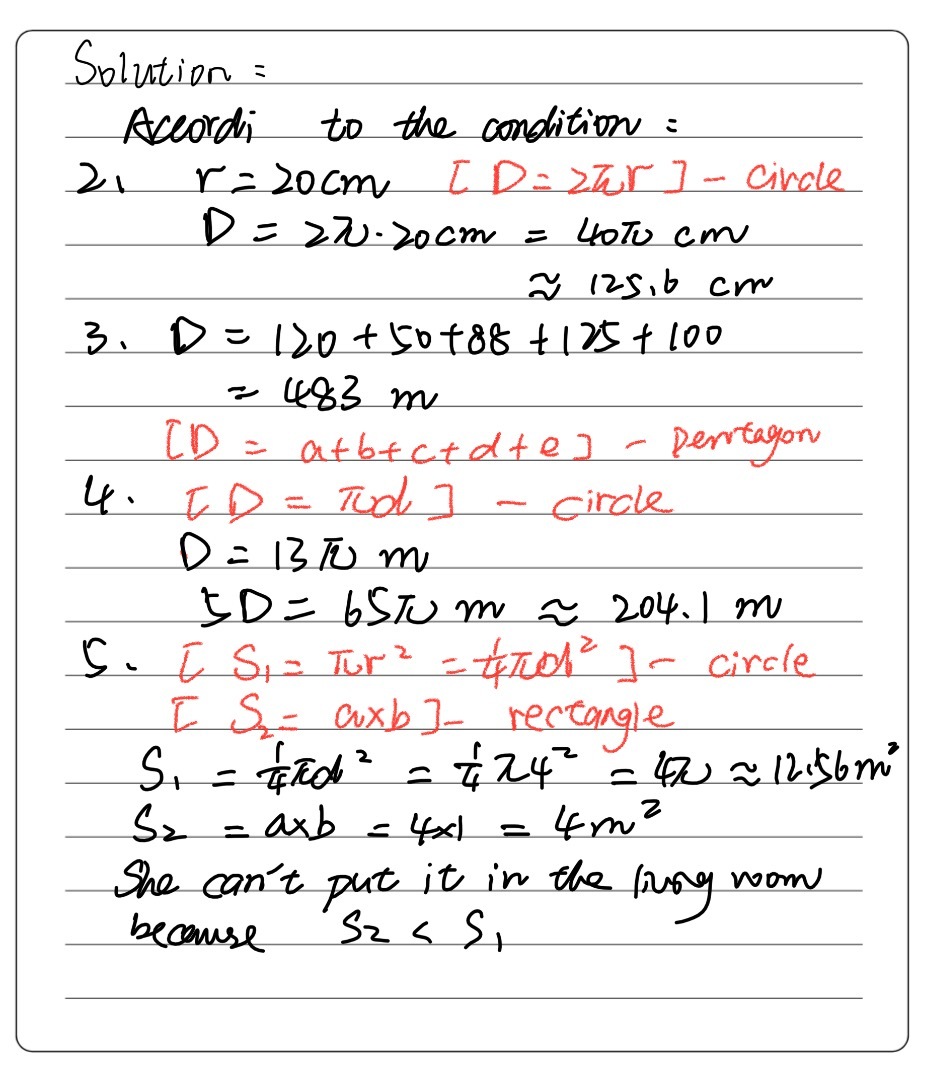 Solution:
Accordi to the condition:
2、 r = 20cm [ D = 2πr ] - circle
D = 2π·20cm = 40π cm
≈ 125.6 cm
3、 D = 120 + 50 + 88 + 125 + 100
= 483 m
[D = a+b+c+d+e] - Pentagon
4. [ D = πd ] - circle
D = 13π m
5D = 65π m ≈ 204.1 m
5. [ S₁ = πr² = ¼πd² ] - circle
[ S₂ = a×b ] - rectangle
S₁ = ¼πd² = ¼π4² = 4π ≈ 12.56m²
S₂ = a×b = 4×1 = 4m²
She can't put it in the living room
because S₂ < S₁